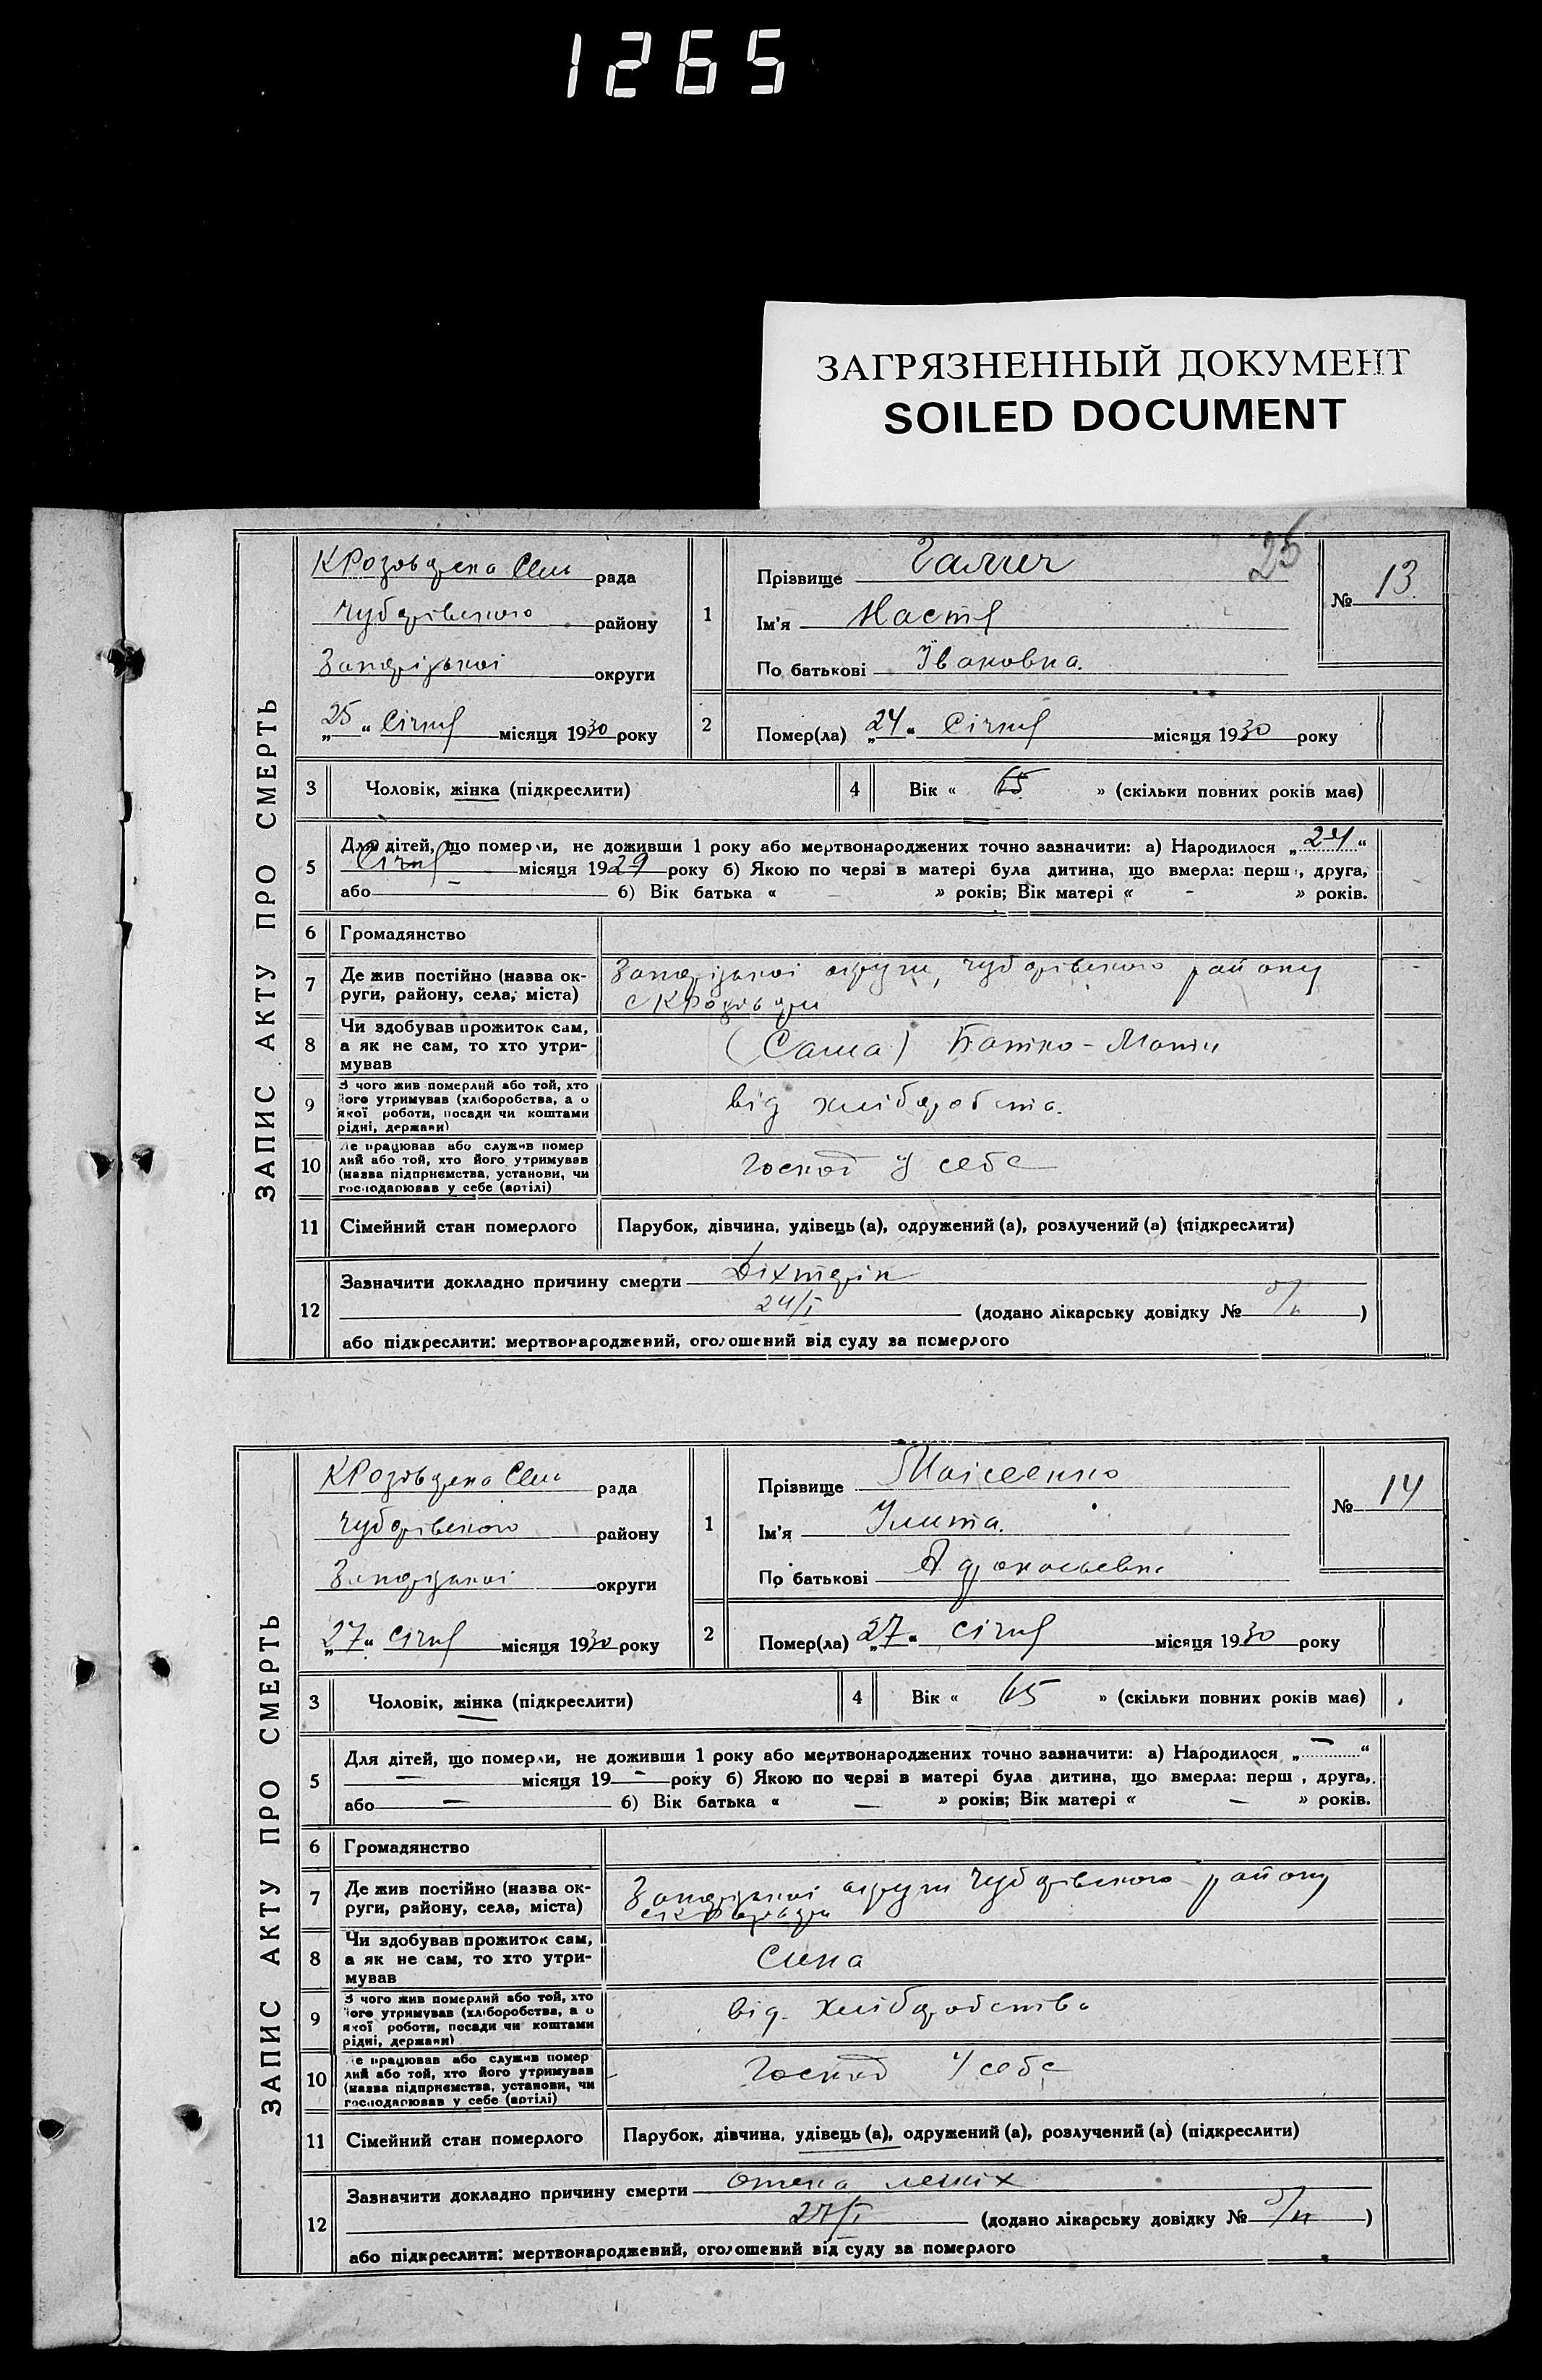 1265
ЗАГРЯЗНЕННЫЙ ДОКУМЕНТ
SOILED DOCUMENT
25
ЗАПИС АКТУ ПРО СМЕРТЬ
рада
Чубарівського району
Запоріської округи
„25“ Січня місяця 1930 року
1
Прізвище Галич
Ім'я Настя
По батькові Івановна.
№ 13
2
Помер(ла) „24“ Січня місяця 1930 року
3 Чоловік, жінка (підкреслити)
4 Вік « » (скільки повних років має)
5 Для дітей, що померли, не доживши 1 року або мертвонароджених точно зазначити: а) Народилося „24“
Січня місяця 1929 року б) Якою по черві в матері була дитина, що вмерла: перш, друга,
або — 6) Вік батька « – » років; Вік матері « - » років.
6 Громадянство
7 Де жив постійно (назва округи, району, села, міста) Запоріської округи, Чубарівського району
8 Чи здобував прожиток сам, а як не сам, то хто утримував (Сама) Батько-Мати
9 З чого жив померлий або той, хто його утримував (хліборобства, а о якої роботи, посади чи коштами рідні, держави) від хліборобства.
10 Де працював або служив померлий або той, хто його утримував (назва підприємства, установи, чи господарював у себе (артілі) Господ у себе
11 Сімейний стан померлого Парубок, дівчина, удівець (а), одружений (а), розлучений (а) (підкреслити)
12 Зазначити докладно причину смерти Діхтерік
24/I (додано лікарську довідку № )
або підкреслити: мертвонароджений, оголошений від суду за померлого
ЗАПИС АКТУ ПРО СМЕРТЬ
рада
Чубарівського району
Запоріської округи
„27“ Січня місяця 1930 року
1
Прізвище Моісеенко
Ім'я Улита.
По батькові
№ 14
2
Помер(ла) „27“ Січня місяця 1930 року
3 Чоловік, жінка (підкреслити)
4 Вік « 65 » (скільки повних років має)
5 Для дітей, що померли, не доживши 1 року або мертвонароджених точно зазначити: а) Народилося „—“
— місяця 19 - року б) Якою по черві в матері була дитина, що вмерла: перш, друга,
або — 6) Вік батька « — » років; Вік матері « – » років.
6 Громадянство
7 Де жив постійно (назва округи, району, села, міста) Запоріської округи Чубарівського району
8 Чи здобував прожиток сам, а як не сам, то хто утримував Сина
9 З чого жив померлий або той, хто його утримував (хліборобства, а о якої роботи, посади чи коштами рідні, держави) від хліборобства
10 Де працював або служив померлий або той, хто його утримував (назва підприємства, установи, чи господарював у себе (артілі) Господ у себе
11 Сімейний стан померлого Парубок, дівчина, удівець (а), одружений (а), розлучений (а) (підкреслити)
12 Зазначити докладно причину смерти отека легких
27/I (додано лікарську довідку № )
або підкреслити: мертвонароджений, оголошений від суду за померлого